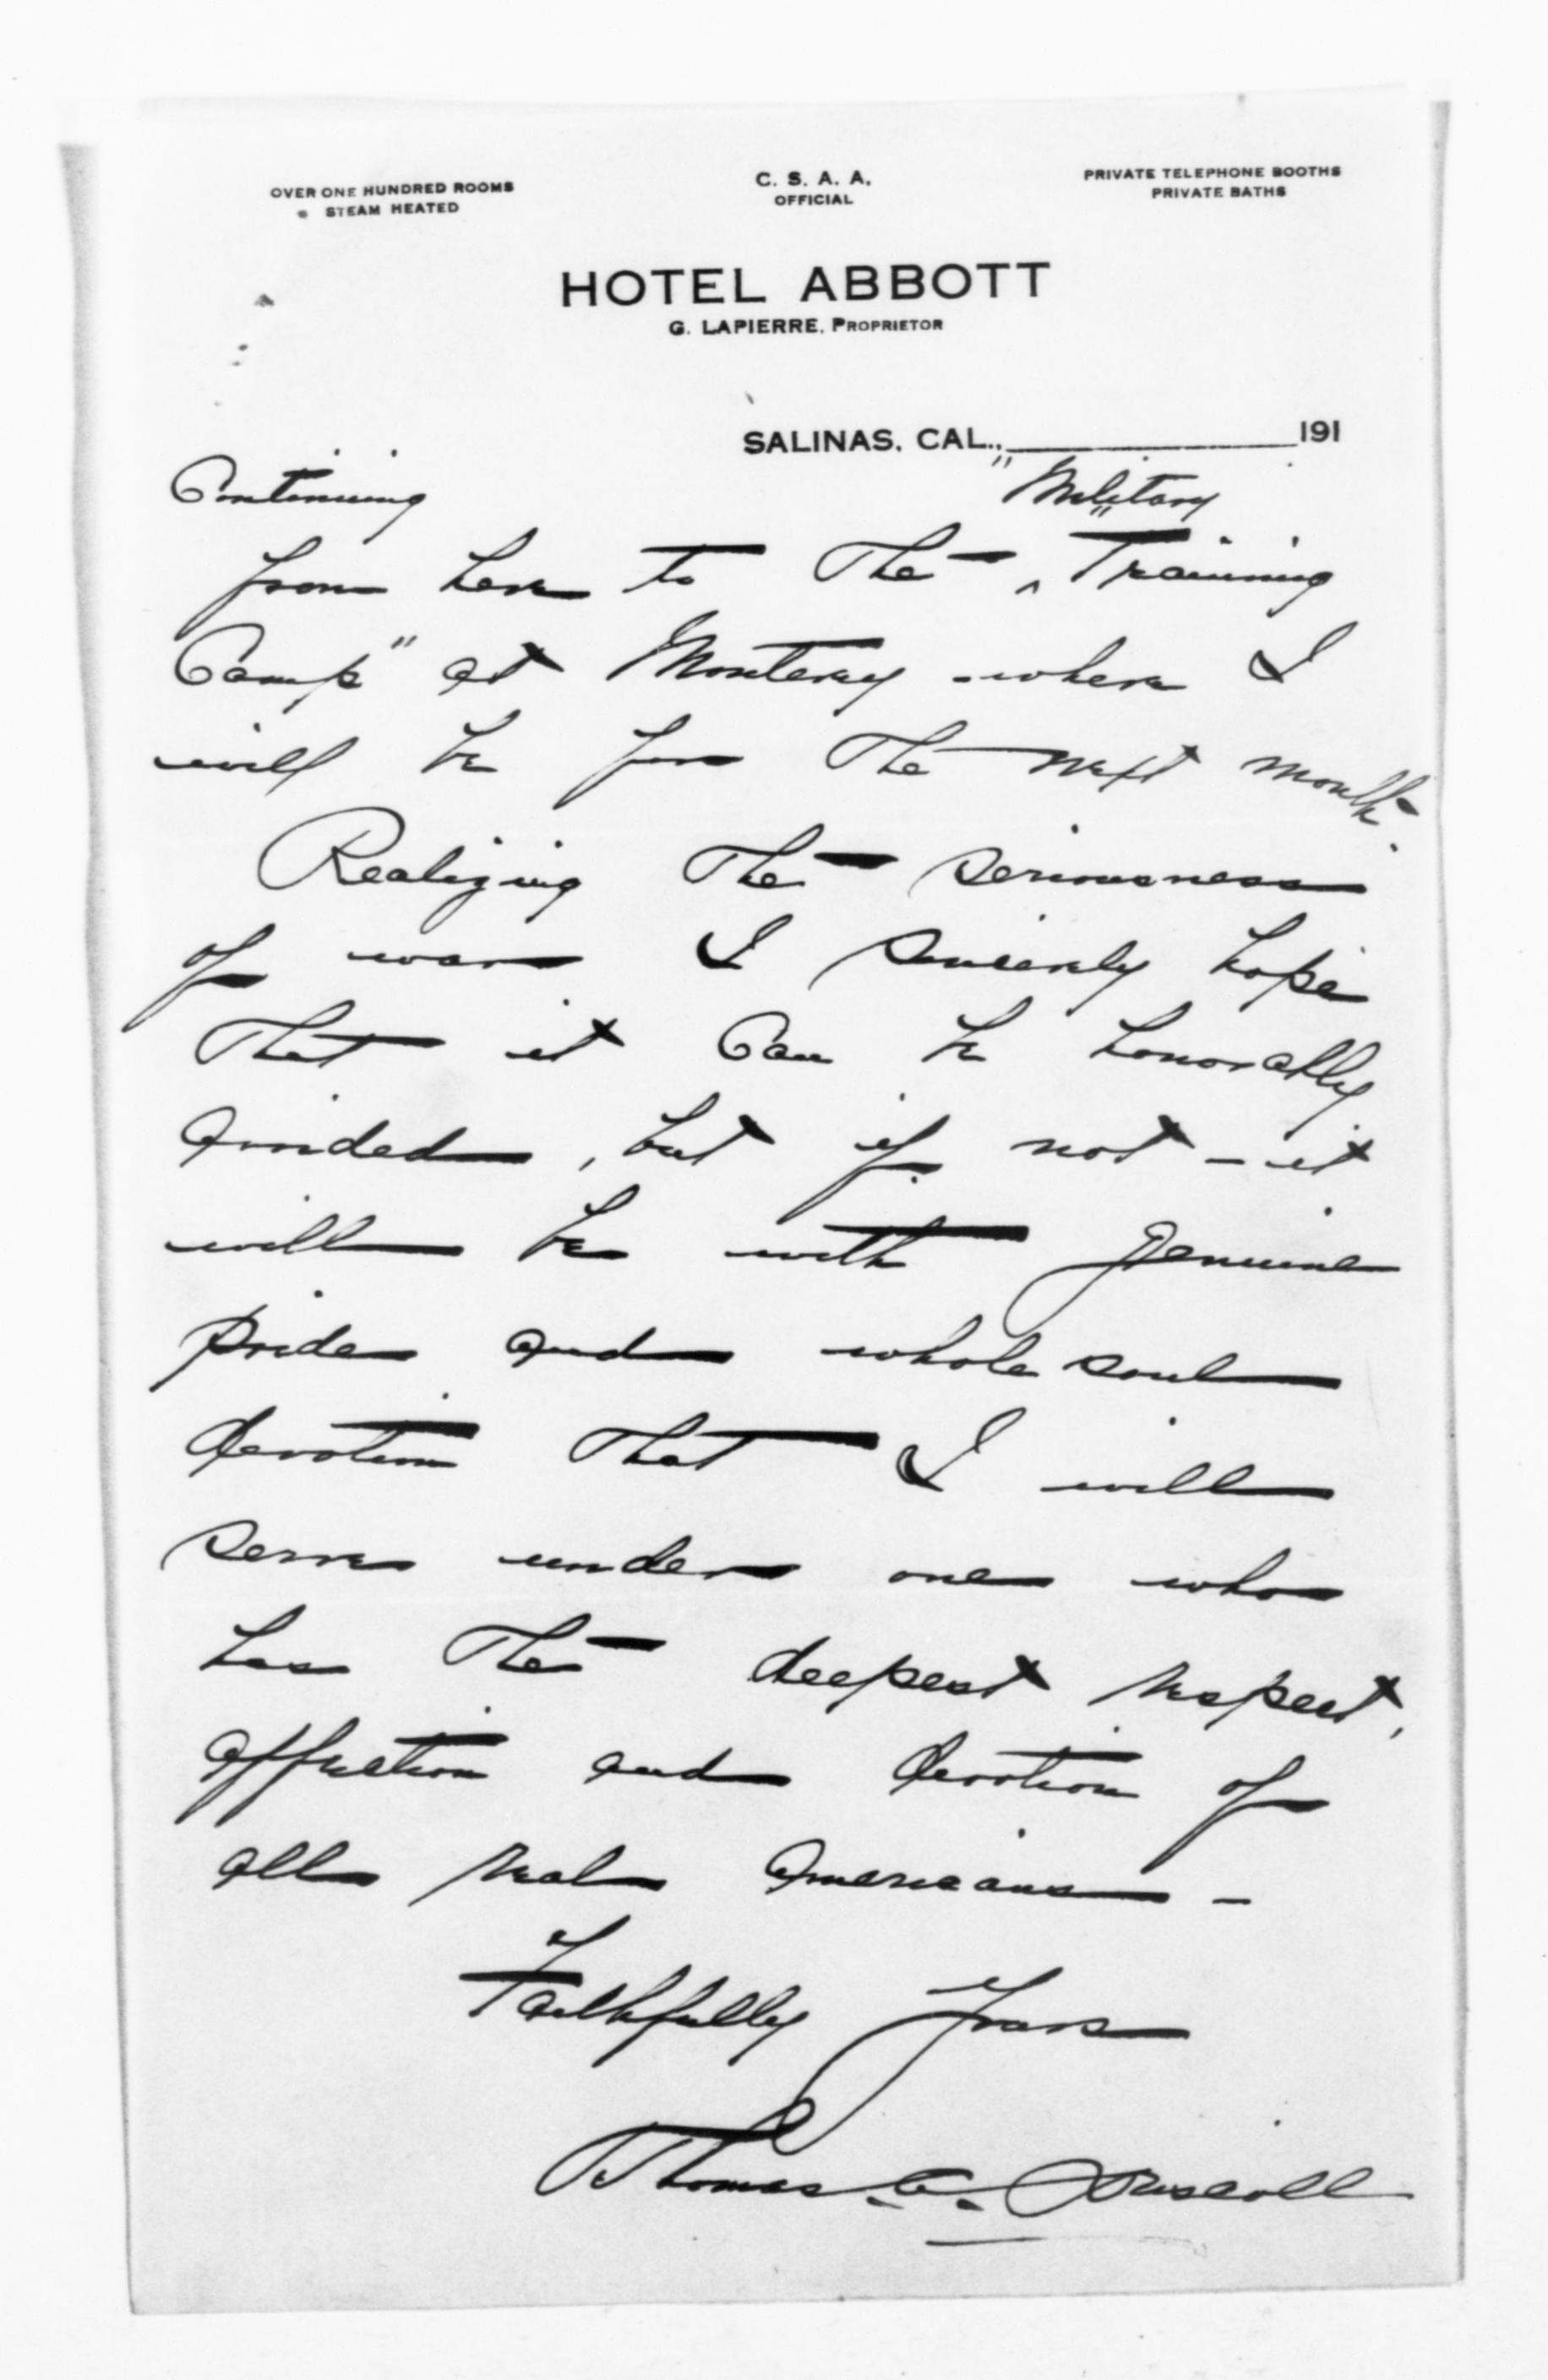 OVER ONE HUNDRED ROOMS
STEAM HEATED
C. S. A. A.
OFFICIAL
PRIVATE TELEPHONE BOOTHS
PRIVATE BATHS
HOTEL ABBOTT
G. LAPIERRE, PROPRIETOR
SALINAS, CAL., 191
Continuing
"Military
from here to the ^ Training
Camp" at Monterey - where I
will be for the next month.
Realizing the seriousness
of war I sincerely hope
that it can be honorably
avoided, but if not - it
will be with genuine
pride and whole soul
devotion that I will
serve under one who
has the deepest respect,
affection and devotion of
all real Americans -
Faithfully Yours
Thomas A. Driscoll